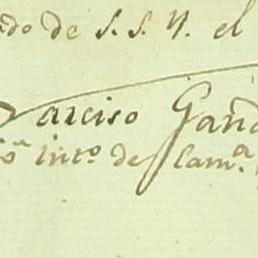 do de S. S. Y. el
Narciso Gand
int.º de Cam.ª